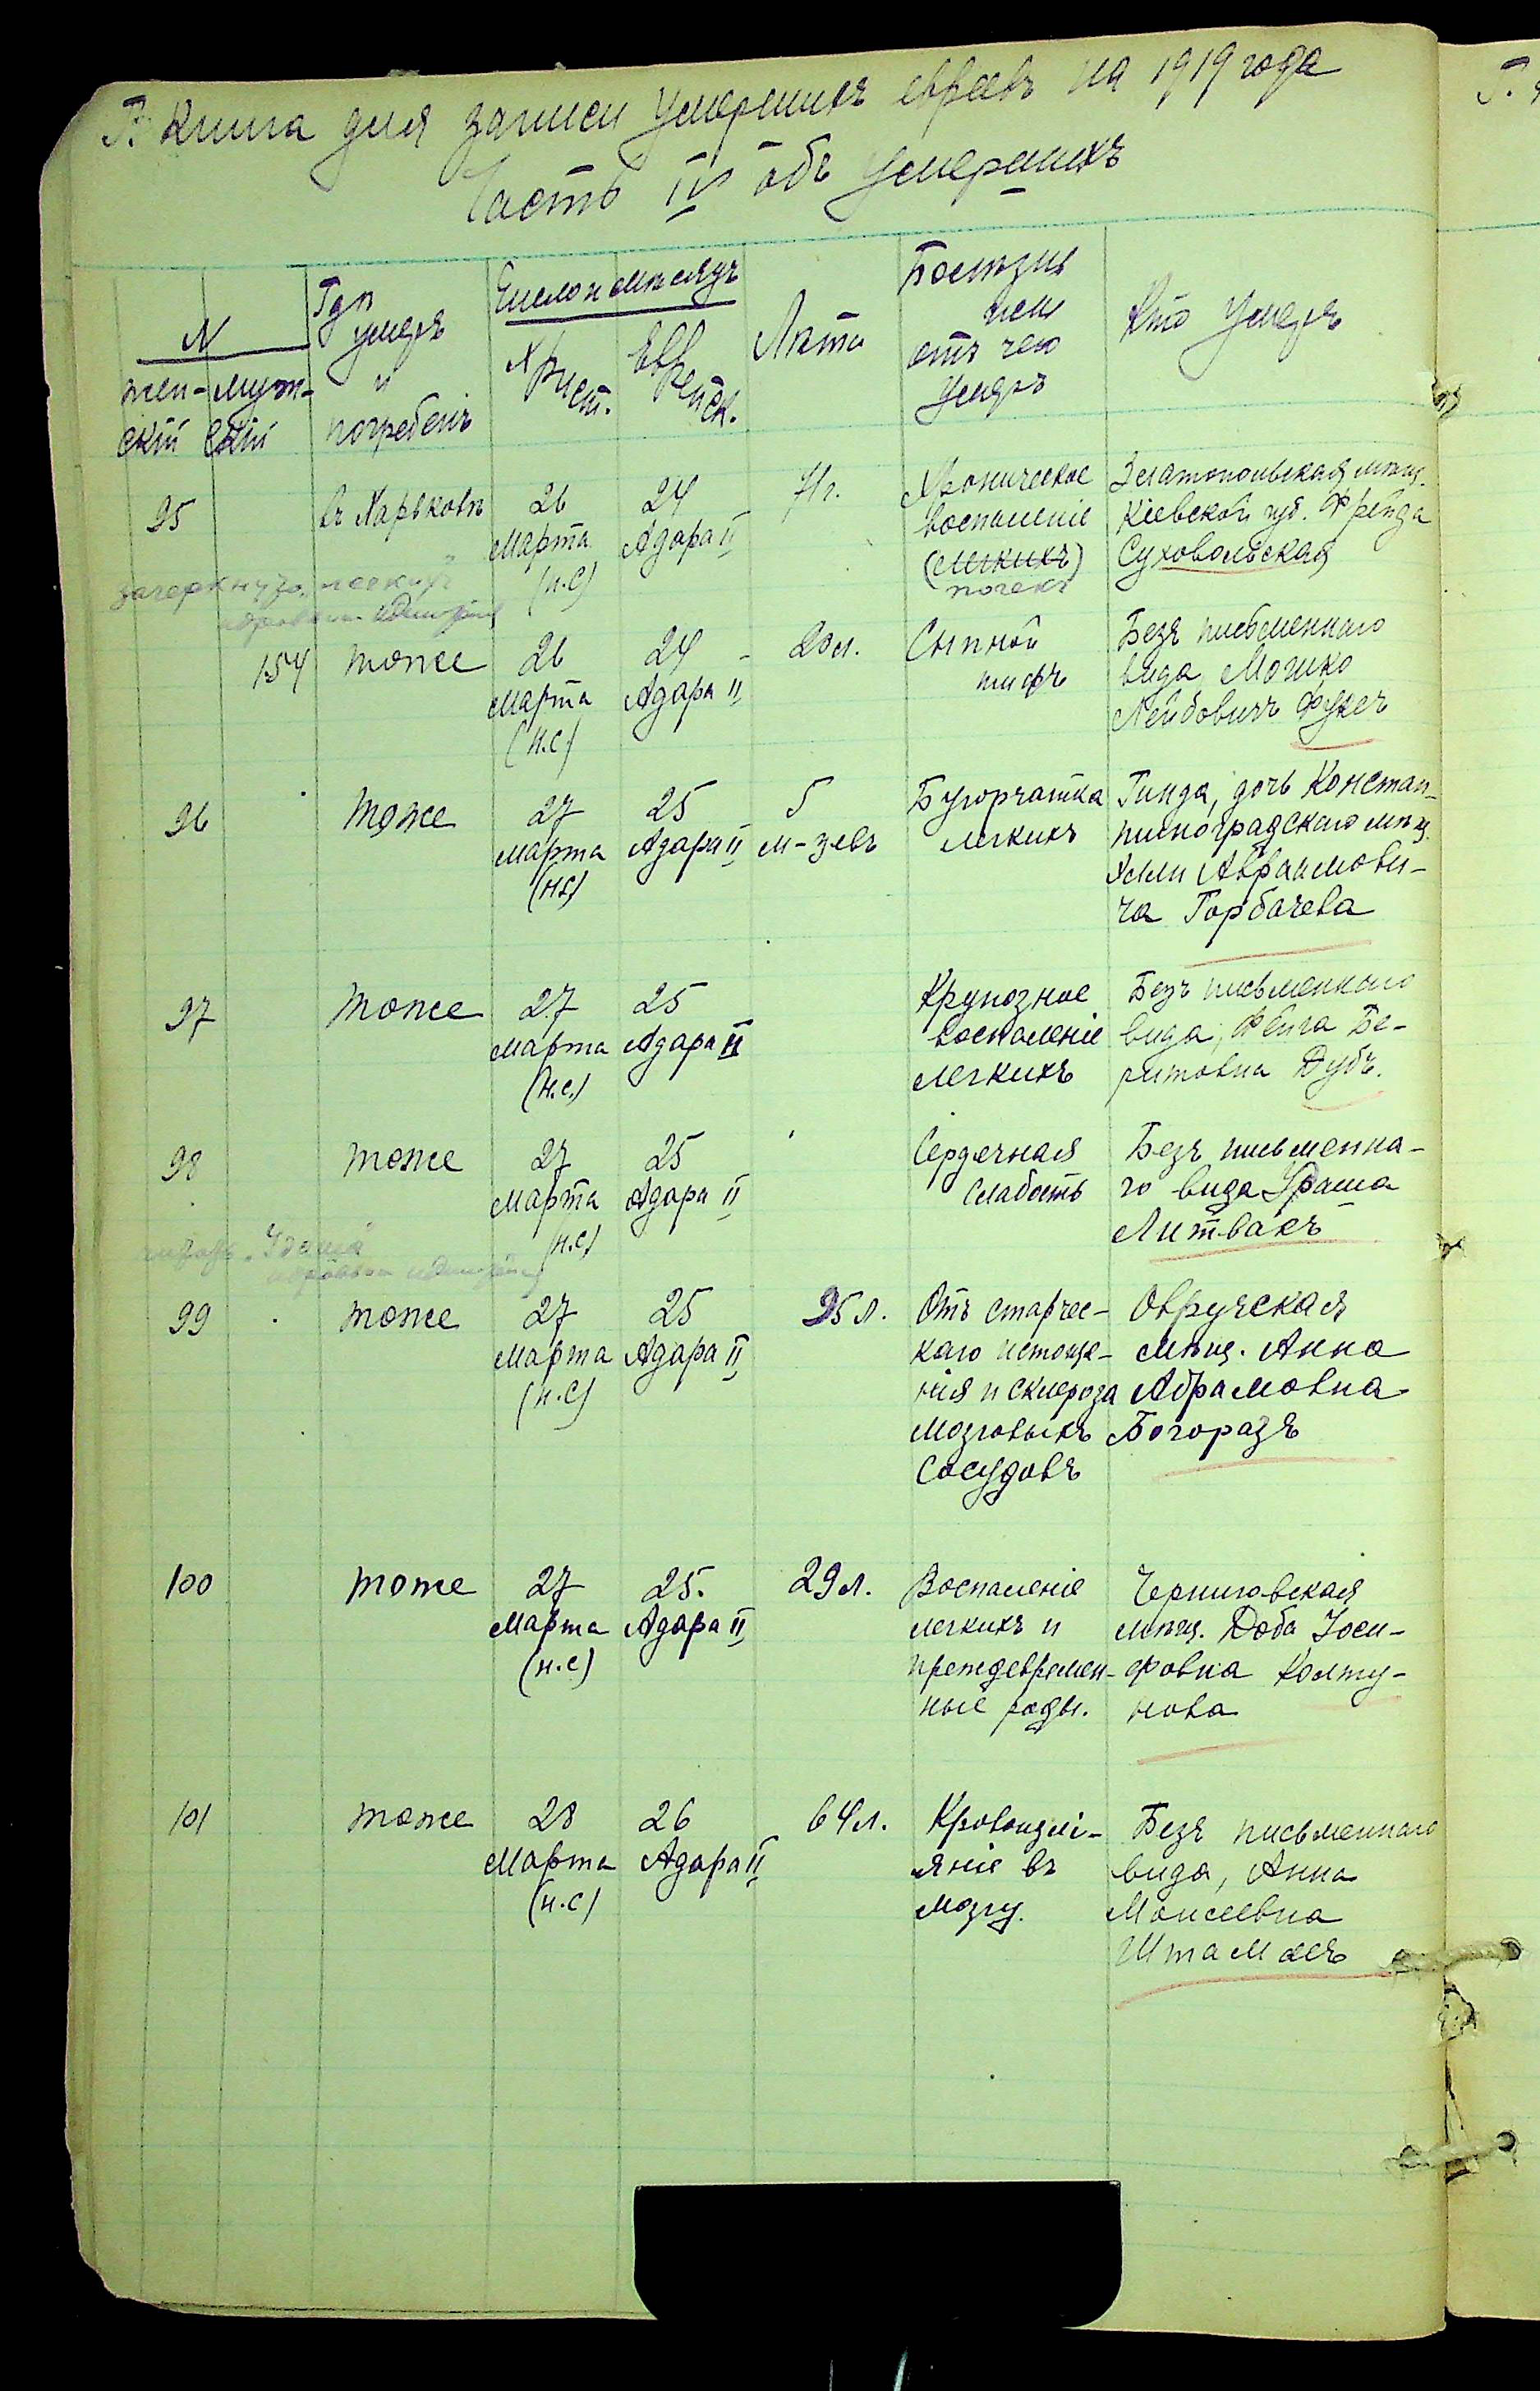 Р. Книга для записи умершихъ евреевъ на 1919 года
Часть IV объ умершихъ
N
жен- муж-
скій скій
Гдѣ
умеръ
и
погребенъ
Число и мѣсяцъ
Христ.
Еврейск.
Лѣта
Болѣзнь
или
отъ чего
умеръ
Кто умеръ
95 въ Харьковѣ 26 24 71 г. Хроническое Златопольская мѣщ.
Марта Адара II воспаленіе Кіевской губ. Фрейда
(н.с) (легкихъ) Суховольская
почекъ
зачеркнуто „легкихъ
154 тоже 26 24 20 л. Сыпной Безъ письменнаго
Марта Адара II тифъ вида Мошко
(н.с) Лейбовичъ Фукс
96 тоже 27 25 5 Бугорчатка Гинда, дочь Констан-
Марта Адара II м-цевъ легкихъ тиноградскаго мѣщ.
(нс) Авраамови-
ча Горбачева
97 тоже 27 25 Крупозное Безъ письменнаго
Марта Адара II воспаленіе вида, Фейга Бе-
(н.с.) легкихъ Дубъ.
98 тоже 27 25 Сердечная Безъ письменна-
Марта Адара II слабость го вида
(н.с) Литвакъ
99 тоже 27 25 95 л. Отъ старчес- Овручская
Марта Адара II каго истоще- мѣщ. Анна
(н.с) нія и склероза Абрамовна
мозговыхъ Богоразъ
сосудовъ
100 тоже 27 25. 29 л. Воспаленіе Черниговская
Марта Адара II легкихъ и мѣщ. Доба Іоси-
(н.с) преждевремен- фовна Колту-
ные роды. нова
101 тоже 28 26 64 л. Кровоизлі- Безъ письменнаго
Марта Адара II яніе въ вида, Анна
(н.с) мозгу. Моисеевна
Штамасъ